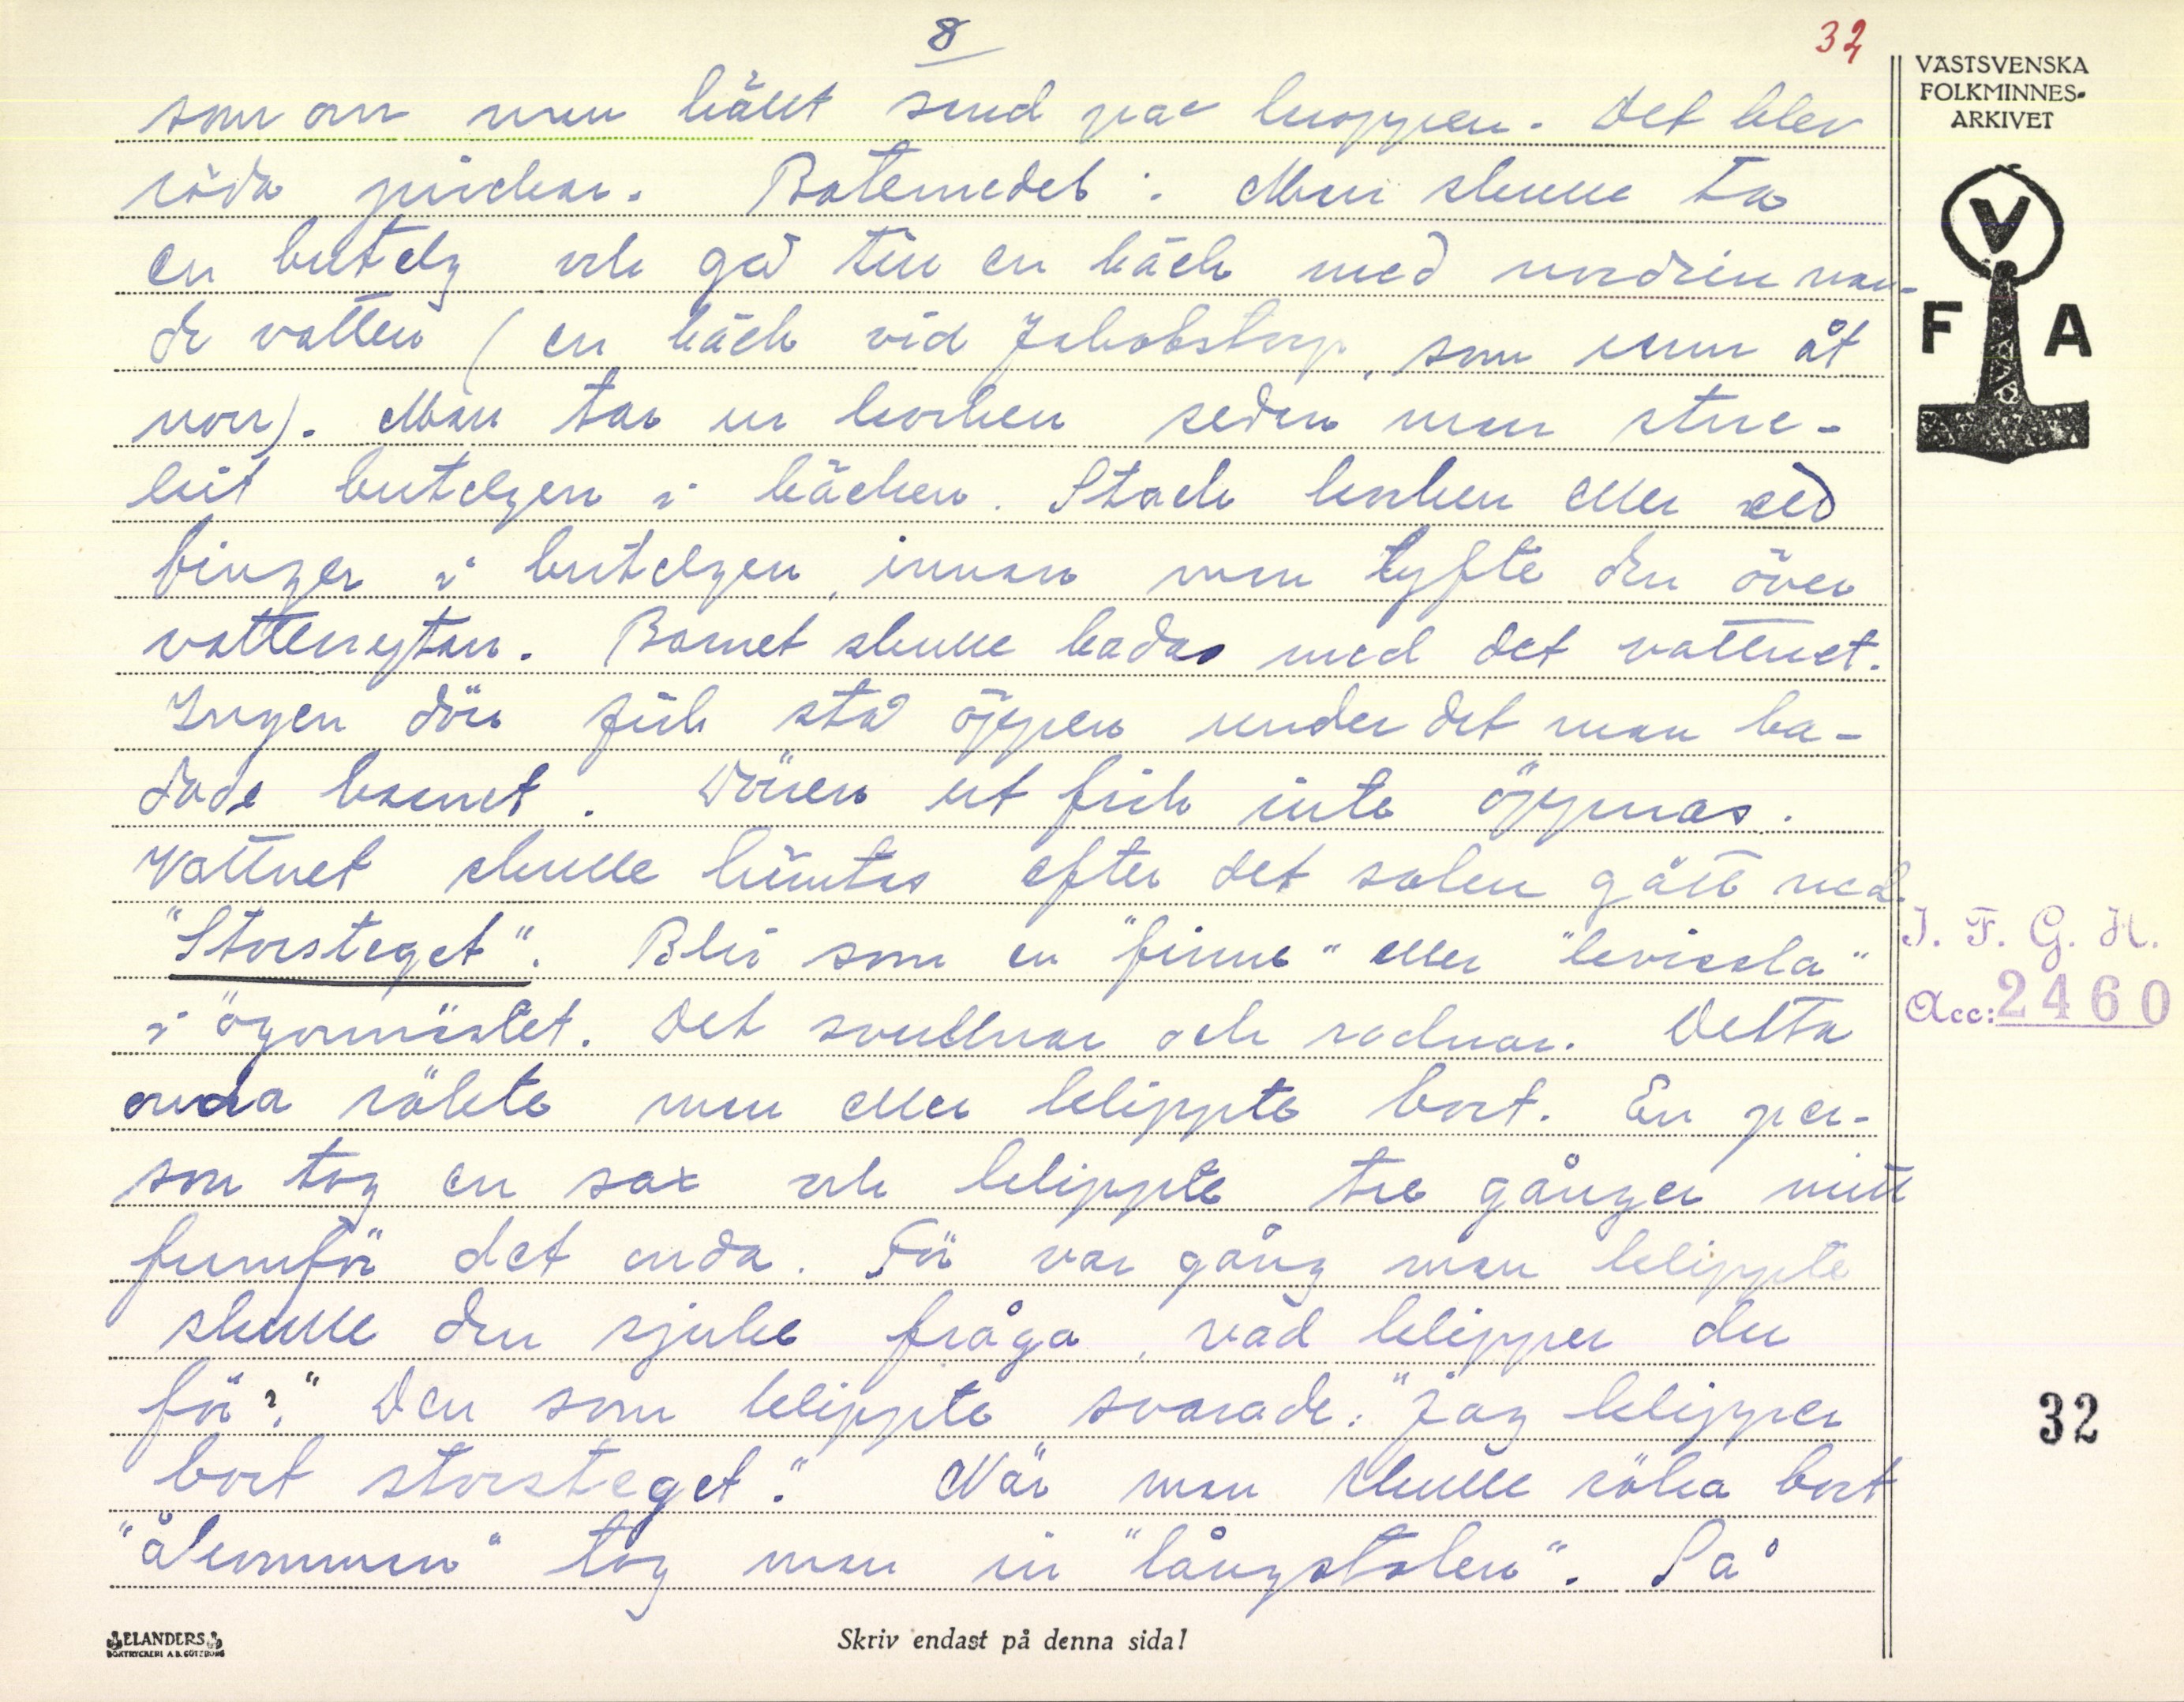 8
32
VÄSTSVENSKA
FOLKMINNES-
ARKIVET
V
F A
som om man hällt sand på kroppen. Det blev
röda prickar. Botemedel: Man skulle ta
en butelj och gå till en bäck med nordrinnan-
de vatten (en bäck vid Jakobstorp, som rann åt
norr). Man tar ur korken sedan man
butelgen i bäcken. Stack korken eller ett
finger i butelgen, innan man lyfte den över
vattenytan. Barnet skulle badas med det vattnet.
Ingen dörr fick stå öppen under det man ba-
dade barnet. Dörren ut fick inte öppnas.
Vattnet skulle hämtas efter det solen gått ned.
"Storsteget". Blir som en "finne" eller "kvissla"
i ögonvistet. Det svullnar och rodnar. Detta
onda rökte man eller klippte bort. En per-
son tog en sax och klippte tre gånger mitt
framför det onda. För var gång man klippte
skulle den sjuke fråga, vad klipper du
för?" Den som klippte svarade: "Jag klipper
bort storsteget." När man skulle röka bort
tog man in "långstolen". På
I. F. G. H.
Acc: 2460
32
ELANDERS
BOKTRYCKERI A.B. GÖTEBORG
Skriv endast på denna sida!